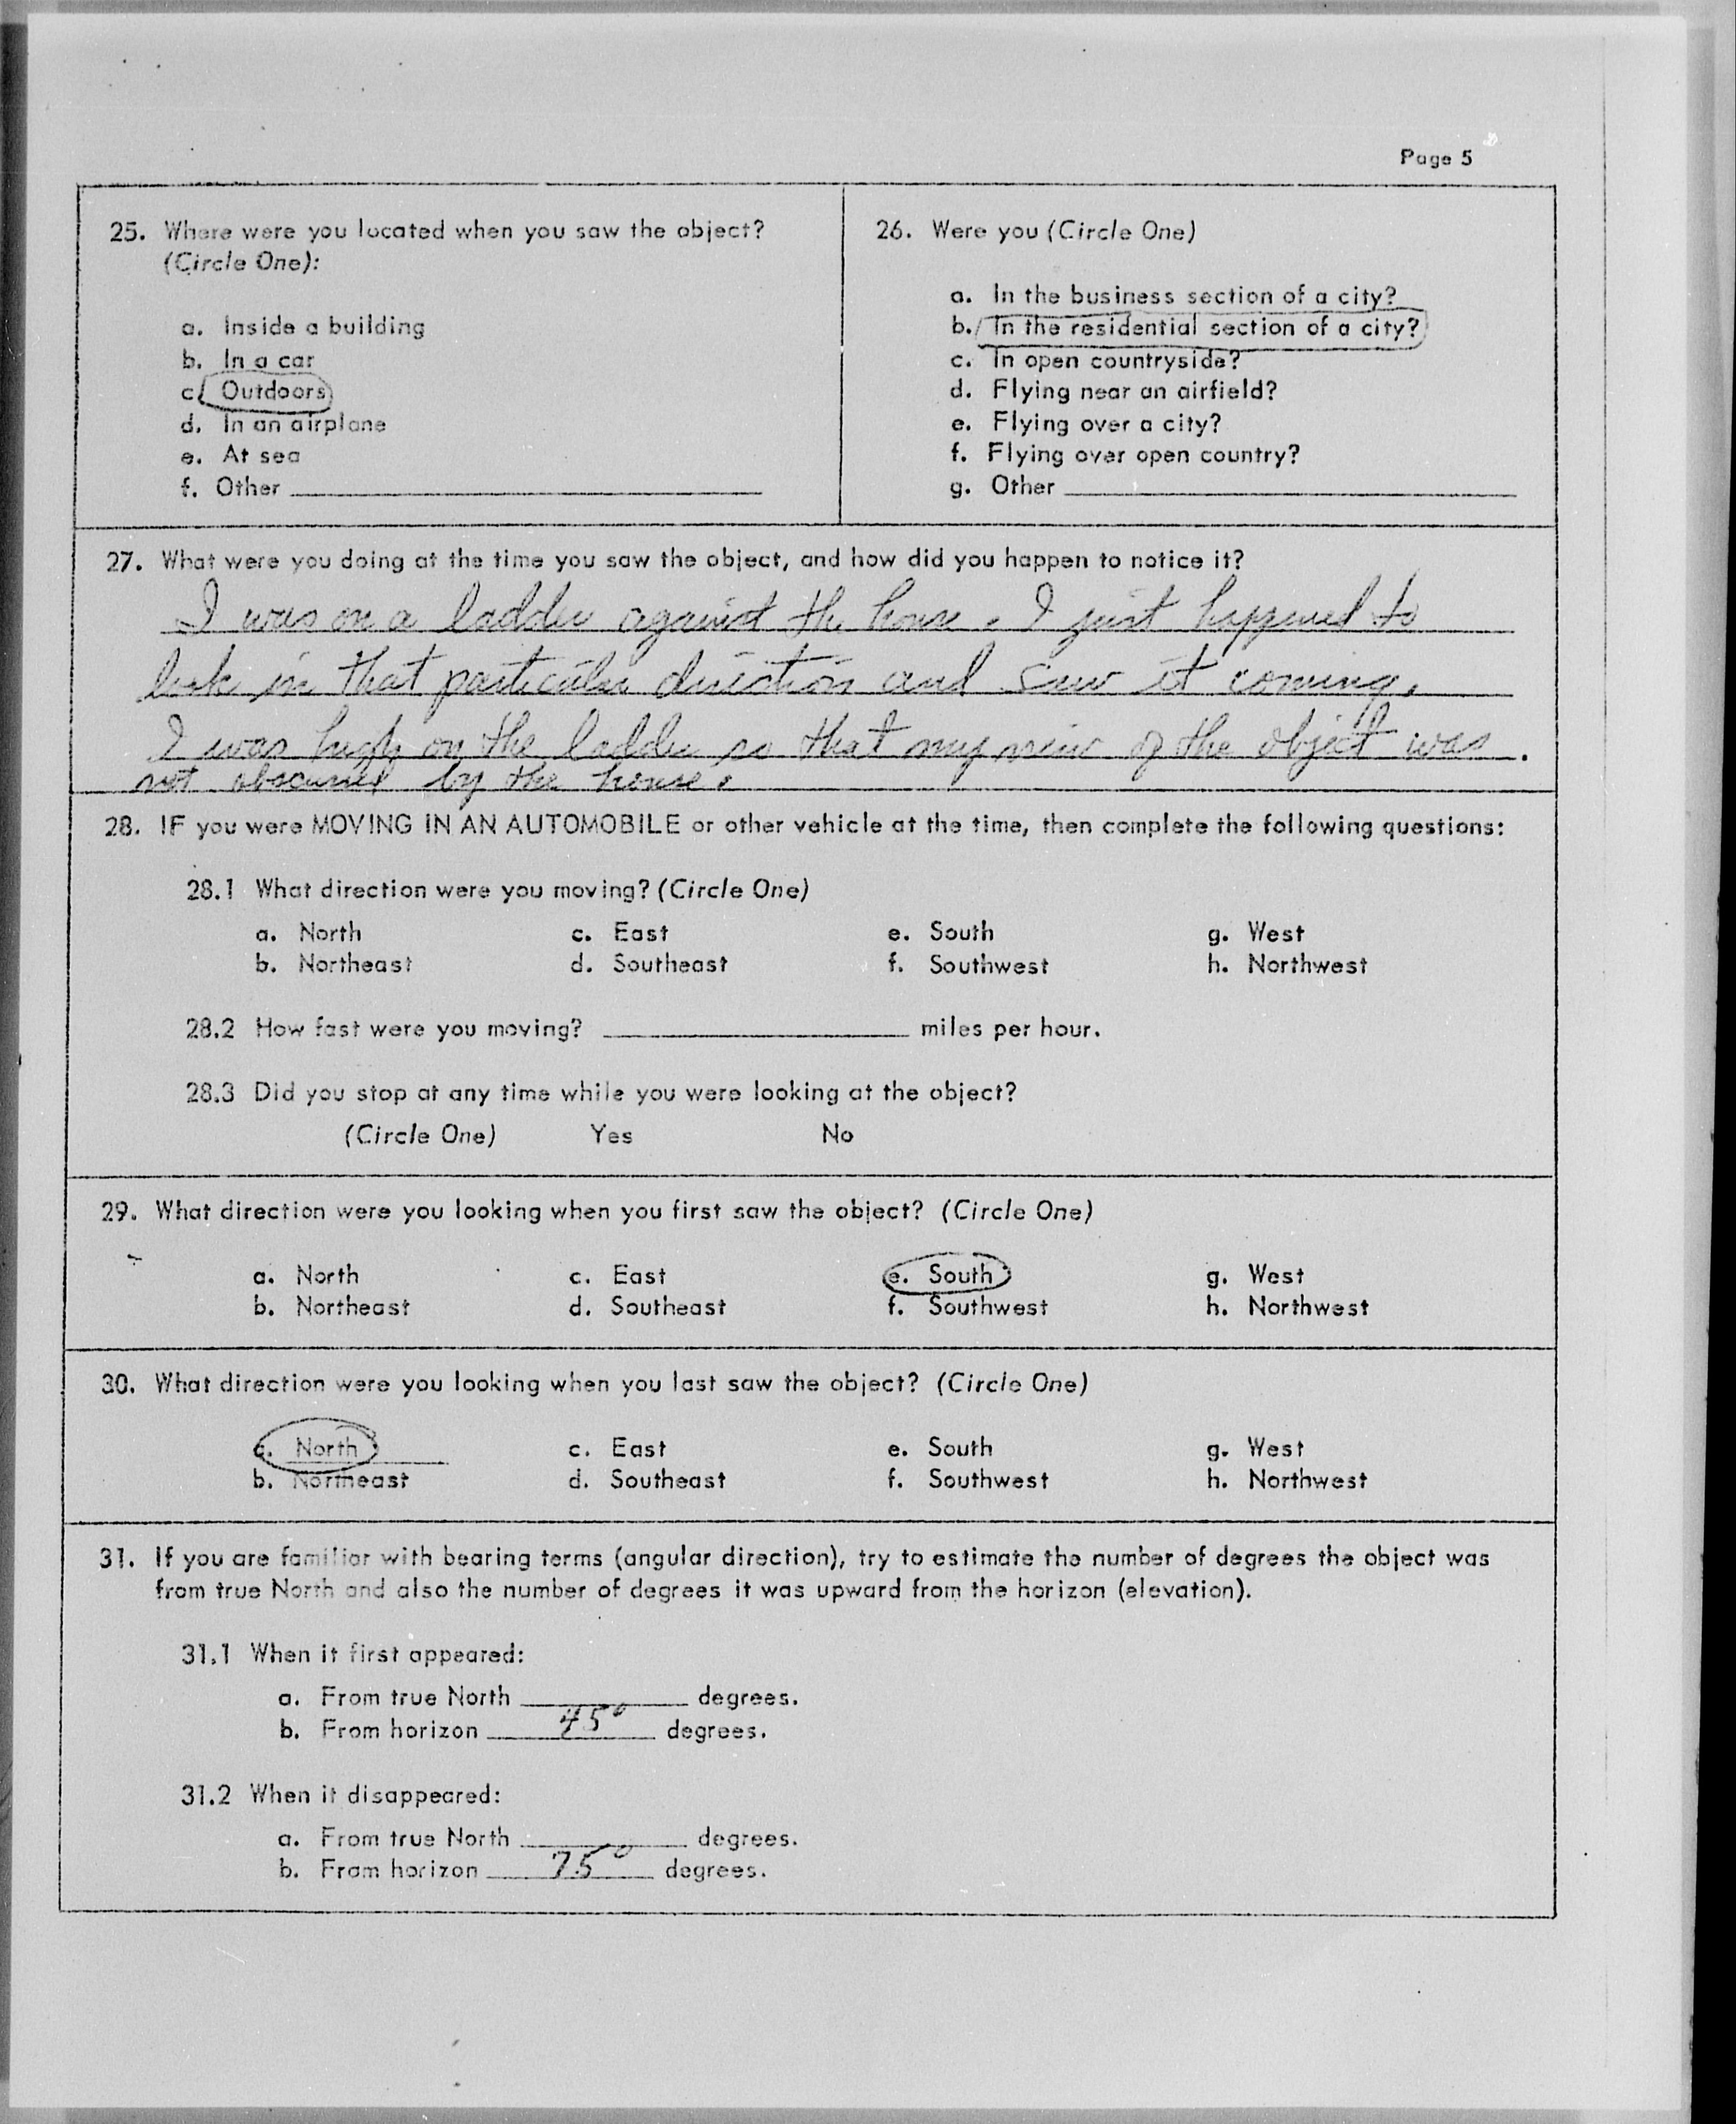 Page 5
25. Where were you located when you saw the object?
(Circle One):
a. Inside a building
b. In a car
c. Outdoors
d. In an airplane
e. At sea
f. Other
26. Were you (Circle One)
a. In the business section of a city?
b. In the residential section of a city?
c. In open countryside?
d. Flying near an airfield?
e. Flying over a city?
f. Flying over open country?
g. Other
27. What were you doing at the time you saw the object, and how did you happen to notice it?
I was on a ladder against the house. I just happened to
look in that particular direction and saw it coming.
I was high on the ladder so that my view of the object was
not obscured by the house.
28. IF you were MOVING IN AN AUTOMOBILE or other vehicle at the time, then complete the following questions:
28.1 What direction were you moving? (Circle One)
a. North c. East e. South g. West
b. Northeast d. Southeast f. Southwest h. Northwest
28.2 How fast were you moving? miles per hour.
28.3 Did you stop at any time while you were looking at the object?
(Circle One) Yes No
29. What direction were you looking when you first saw the object? (Circle One)
a. North c. East e. South g. West
b. Northeast d. Southeast f. Southwest h. Northwest
30. What direction were you looking when you last saw the object? (Circle One)
a. North c. East e. South g. West
b. Northeast d. Southeast f. Southwest h. Northwest
31. If you are familiar with bearing terms (angular direction), try to estimate the number of degrees the object was
from true North and also the number of degrees it was upward from the horizon (elevation).
31.1 When it first appeared:
a. From true North degrees.
b. From horizon 45° degrees.
31.2 When it disappeared:
a. From true North degrees.
b. From horizon 75° degrees.